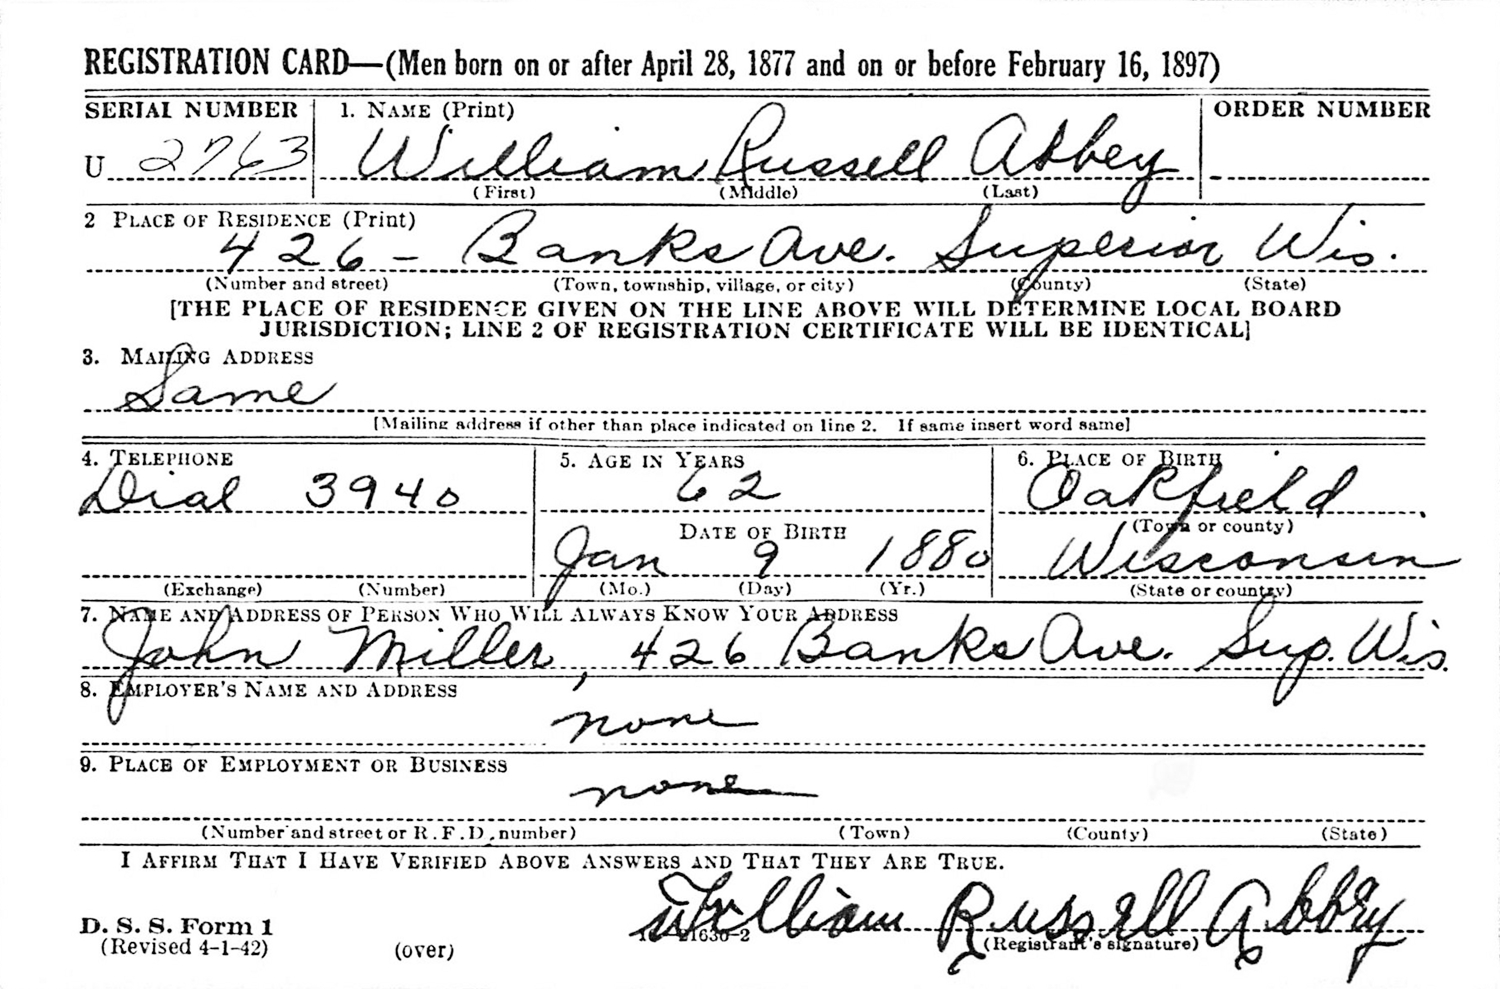 REGISTRATION CARD—(Men born on or after April 28, 1877 and on or before February 16, 1897)
SERIAL NUMBER 1. NAME (Print) ORDER NUMBER
U 2763 William Russell Abbey
(First) (Middle) (Last)
2 PLACE OF RESIDENCE (Print)
426 - Banks Ave. Superior Wis.
(Number and street) (Town, township, village, or city) (County) (State)
[THE PLACE OF RESIDENCE GIVEN ON THE LINE ABOVE WILL DETERMINE LOCAL BOARD
JURISDICTION; LINE 2 OF REGISTRATION CERTIFICATE WILL BE IDENTICAL]
3. MAILING ADDRESS
Same
[Mailing address if other than place indicated on line 2. If same insert word same]
4. TELEPHONE 5. AGE IN YEARS 6. PLACE OF BIRTH
Dial 3940 62 Oakfield
DATE OF BIRTH (Town or county)
Jan 9 1880 Wisconsin
(Exchange) (Number) (Mo.) (Day) (Yr.) (State or country)
7. NAME AND ADDRESS OF PERSON WHO WILL ALWAYS KNOW YOUR ADDRESS
John Miller, 426 Banks Ave. Sup. Wis.
8. EMPLOYER'S NAME AND ADDRESS
none
9. PLACE OF EMPLOYMENT OR BUSINESS
none
(Number and street or R. F. D. number) (Town) (County) (State)
I AFFIRM THAT I HAVE VERIFIED ABOVE ANSWERS AND THAT THEY ARE TRUE.
William Russell Abbey
D. S. S. Form 1
(Revised 4-1-42) (over) (Registrant's signature)